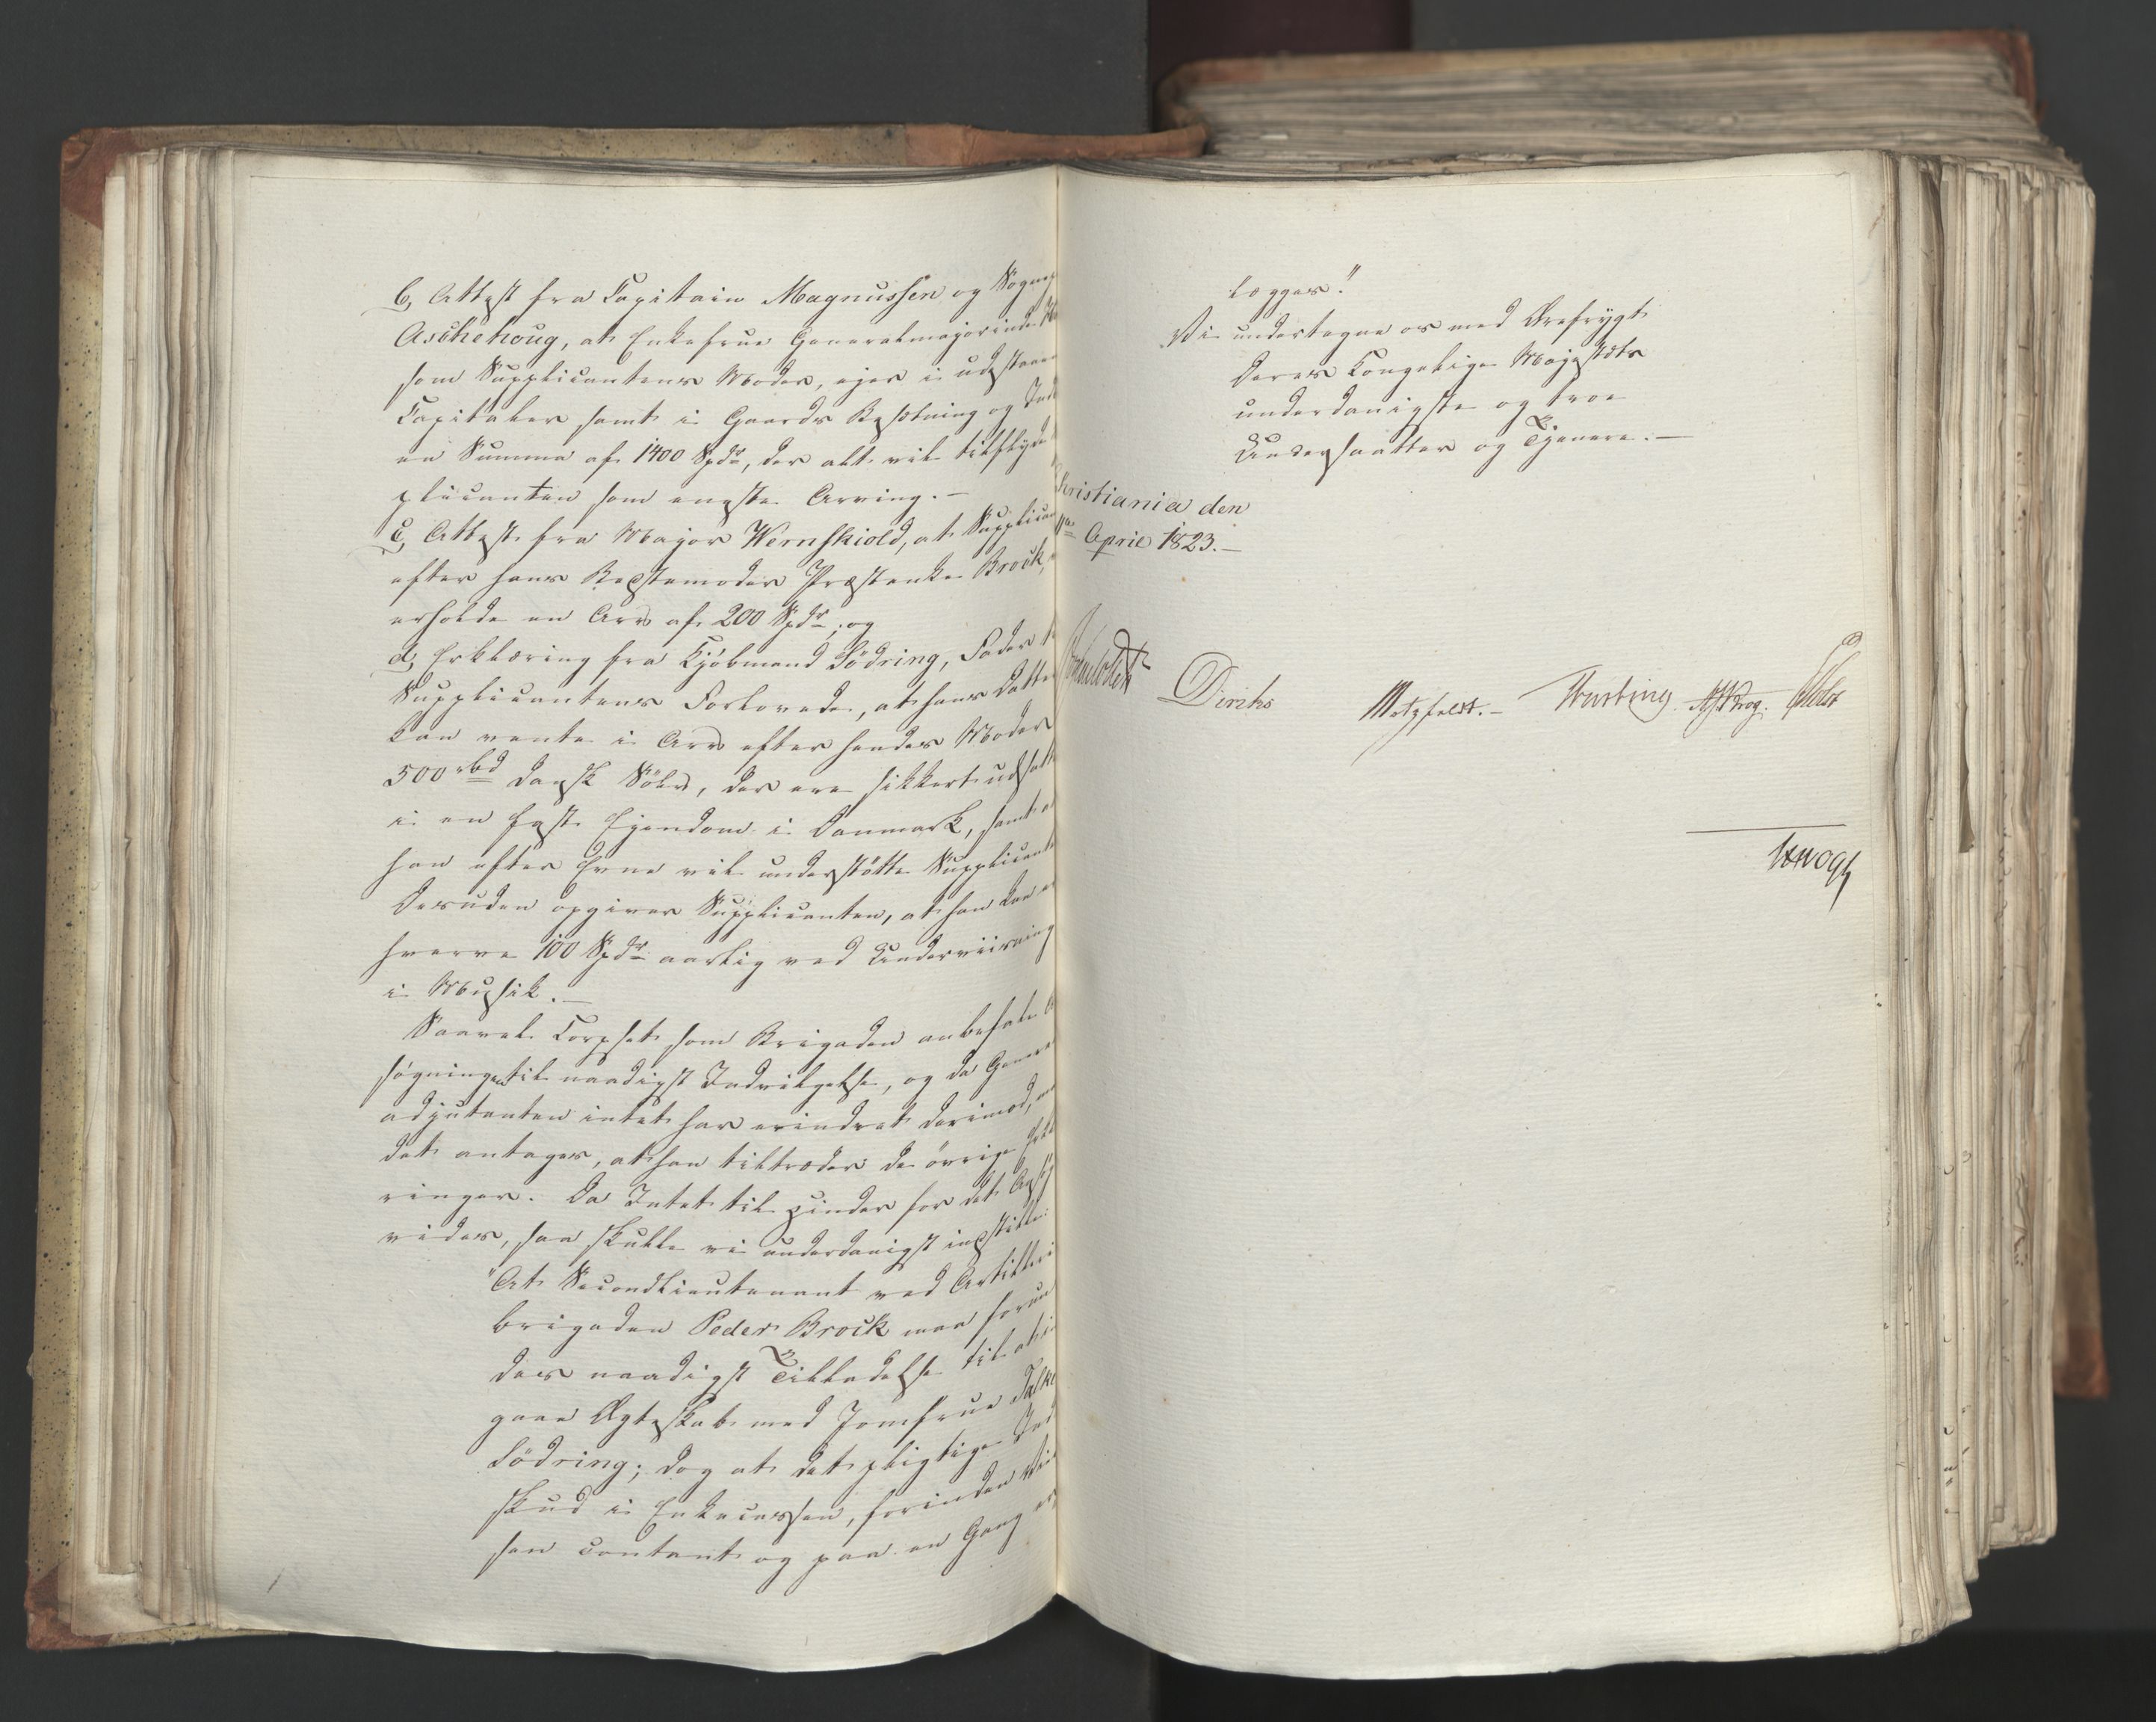 b, Attest fra Capitain Magnussen og Sogne
Aschehoug, at Enkefrue Generalmajorinde
som Supplicantens Moder, ejer i udestaaen
Capitaler samt i Gaards Besætning og Ind
en Summa af 1400 Spdr, der alt vil tilflyde
plicanten som eneste Arving. —
c, Attest fra Major Wernskiold, at Supplican
efter hans Bestemoder Præstenke Brock,
erholde en Arv af 200 Spdr; og
d, Erklæring fra Kjöbmand Södring, Fader
Supplicantens Forlovede, at hans Datter
kan vente i Arv efter hendes Moder
500 rbd dansk Sölv, der ere sikkert udsatte
i en fast Ejendom i Danmark, samt a
han efter Evne vil understötte Supplicant
Desuden opgiver Supplicanten, at han kan
hverve 100 Spdr aarlig ved Underviisning
i Musik. —
Saavel Corpset som Brigaden anbefale A
søgningen til naadigst Indvilgelse, og da Genera
adjutanten intet har erindret derimod, maa
det antages, at han tiltræder de övrige Erklæ
ringer. Da Intet til Hinder for det Ansøg
vides, saa skulle vi underdanigst indstille:
"At Secondlieutenant ved Artilleri
brigaden Peder Brock maa forun
des naadigst Tilladelse til at ind
gaae Ægteskab med Jomfrue
Södring; dog at det pligtige Ind
skud i Enkecassen, forinden Viel
sen contant og paa en Gang er
lægges."
Vi undertegne os med Ærefrygt
Deres Kongelige Majestæts
underdanigste og troe
Undersaatter og Tjenere. —
Christiania den
April 1823. —
Diriks Motzfeldt. — Hwogh